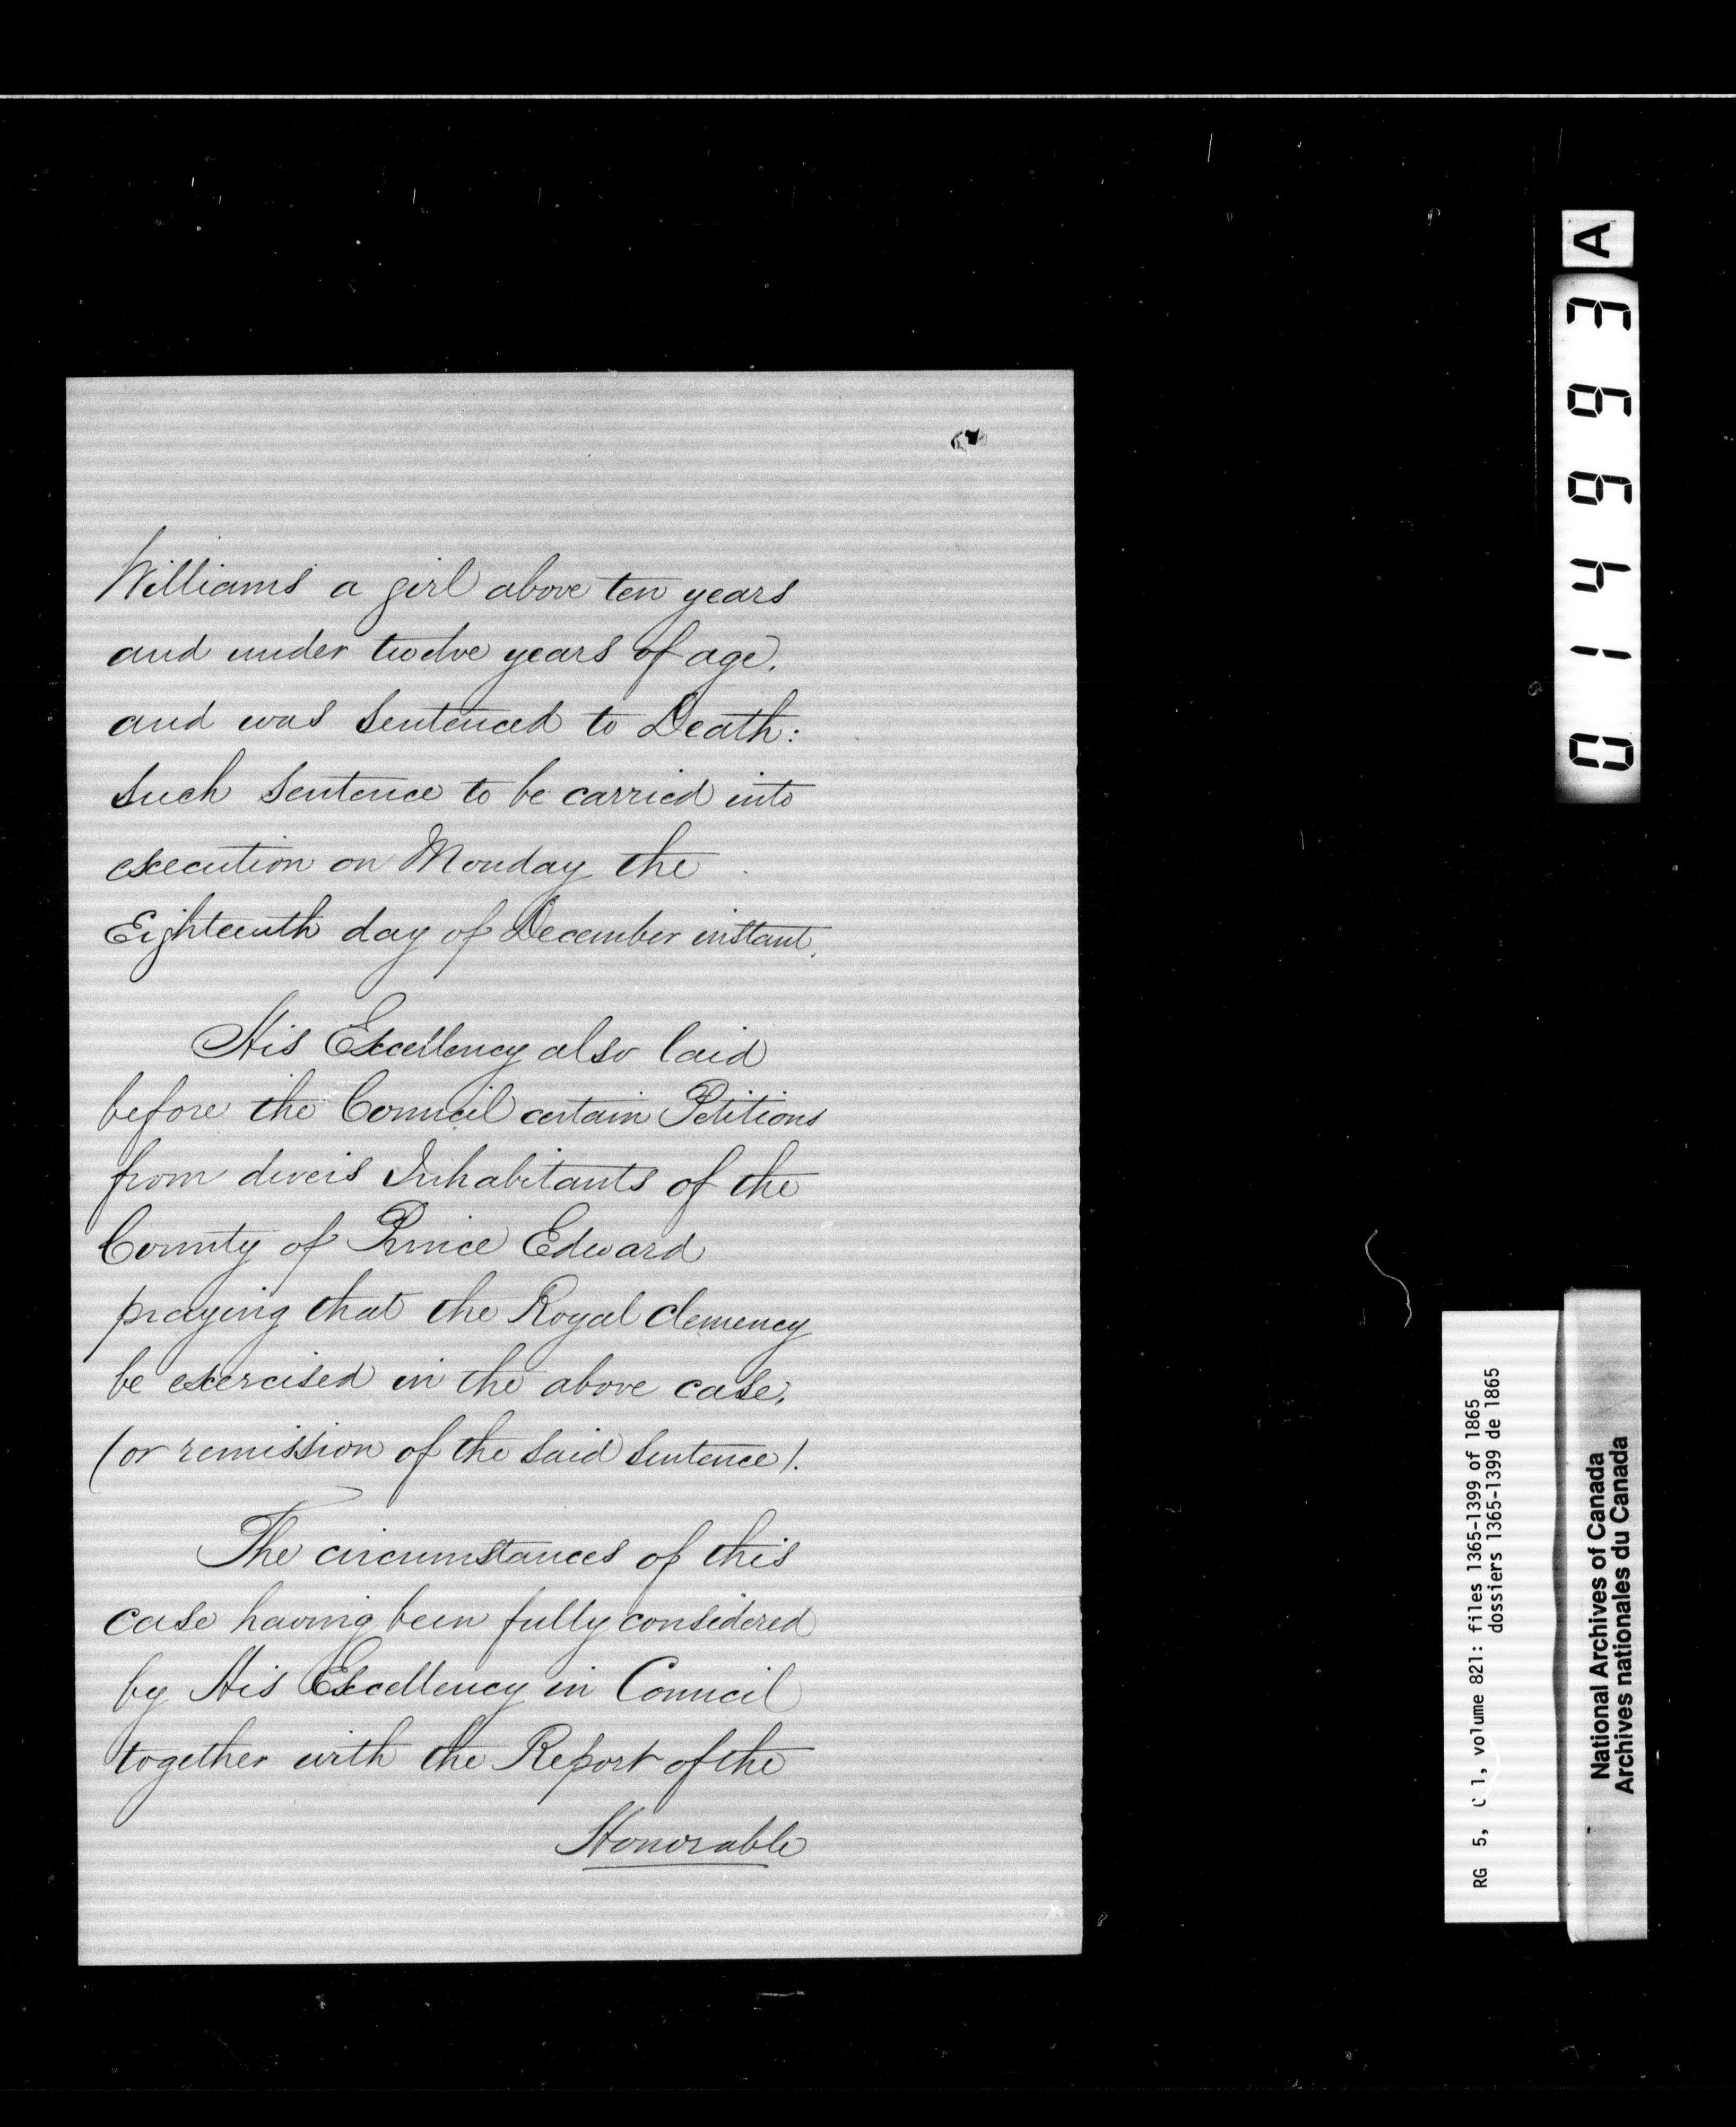 Williams a girl above ten years
and under twelve years of age,
and was sentenced to Death:
such sentence to be carried into
execution on Monday the
Eighteenth day of December instant.
His Excellency also laid
before the Council certain Petitions
from divers Inhabitants of the
County of Prince Edward
praying that the Royal clemency
be exercised in the above case,
(or remission of the said sentence).
The circumstances of this
case having been fully considered
by His Excellency in Council
together with the Report of the
Honorable
014993 A
RG 5, C 1, volume 821: files 1365-1399 of 1865
dossiers 1365-1399 de 1865
National Archives of Canada
Archives nationales du Canada